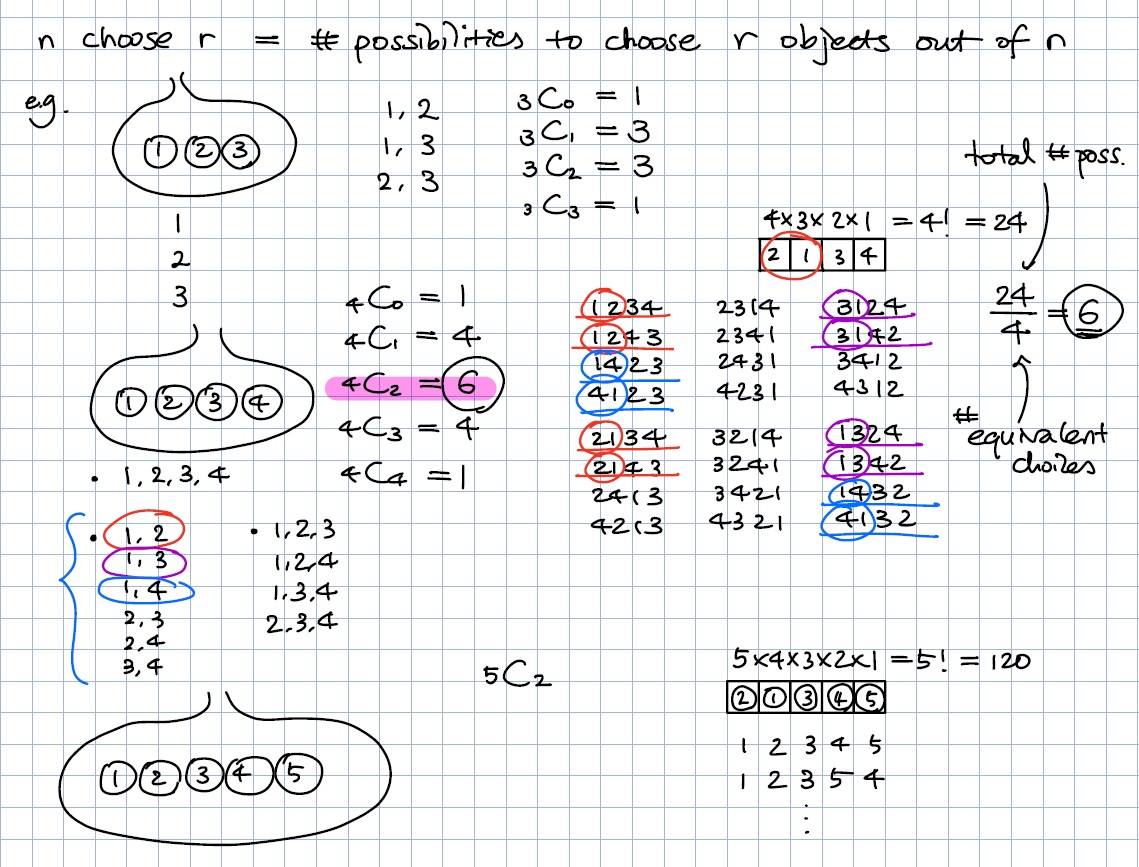 n choose r = # possibilities to choose r objects out of n
e.g.
1 2 3
1
2
3
1, 2
1, 3
2, 3
₃C₀ = 1
₃C₁ = 3
₃C₂ = 3
₃C₃ = 1
total # poss.
4×3×2×1 = 4! = 24
2 1 3 4
24/4 = 6
# equivalent
choices
1 2 3 4
₄C₀ = 1
₄C₁ = 4
₄C₂ = 6
₄C₃ = 4
₄C₄ = 1
1234 2314 3124
1243 2341 3142
1423 2431 3412
4123 4231 4312
2134 3214 1324
2143 3241 1342
2413 3421 1432
4213 4321 4132
• 1, 2, 3, 4
• 1, 2
1, 3
1, 4
2, 3
2, 4
3, 4
• 1, 2, 3
1, 2, 4
1, 3, 4
2, 3, 4
1 2 3 4 5
₅C₂
5×4×3×2×1 = 5! = 120
2 1 3 4 5
1 2 3 4 5
1 2 3 5 4
⋮